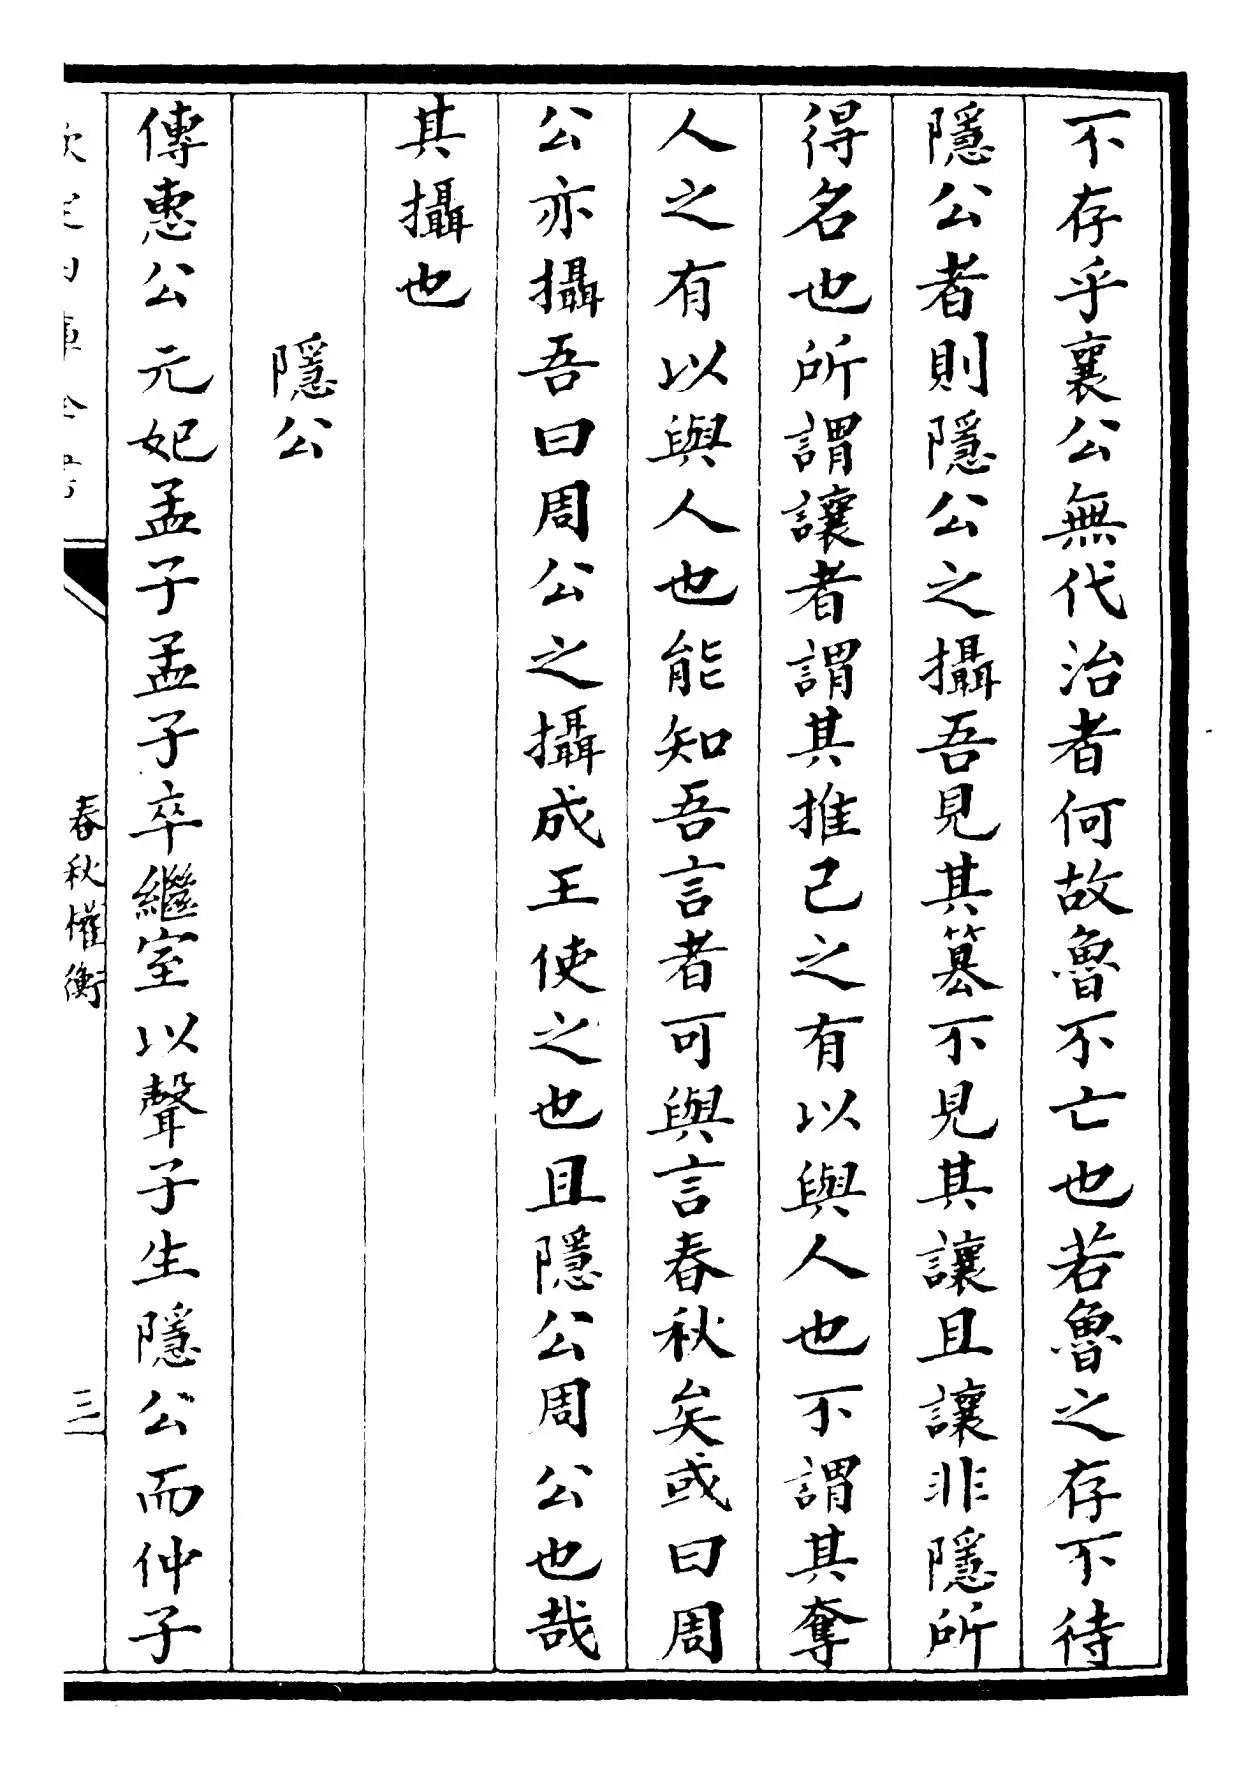 不存乎襄公無代治者何故魯不亡也若魯之存不待
隱公者則隱公之攝吾見其篡不見其讓且讓非隱所
得名也所謂讓者謂其推己之有以與人也不謂其奪
人之有以與人也能知吾言者可與言春秋矣或曰周
公亦攝吾曰周公之攝成王使之也且隱公周公也哉
其攝也
隱公
傳惠公元妃孟子孟子卒繼室以聲子生隱公而仲子
欽定四庫全書
春秋權衡
三